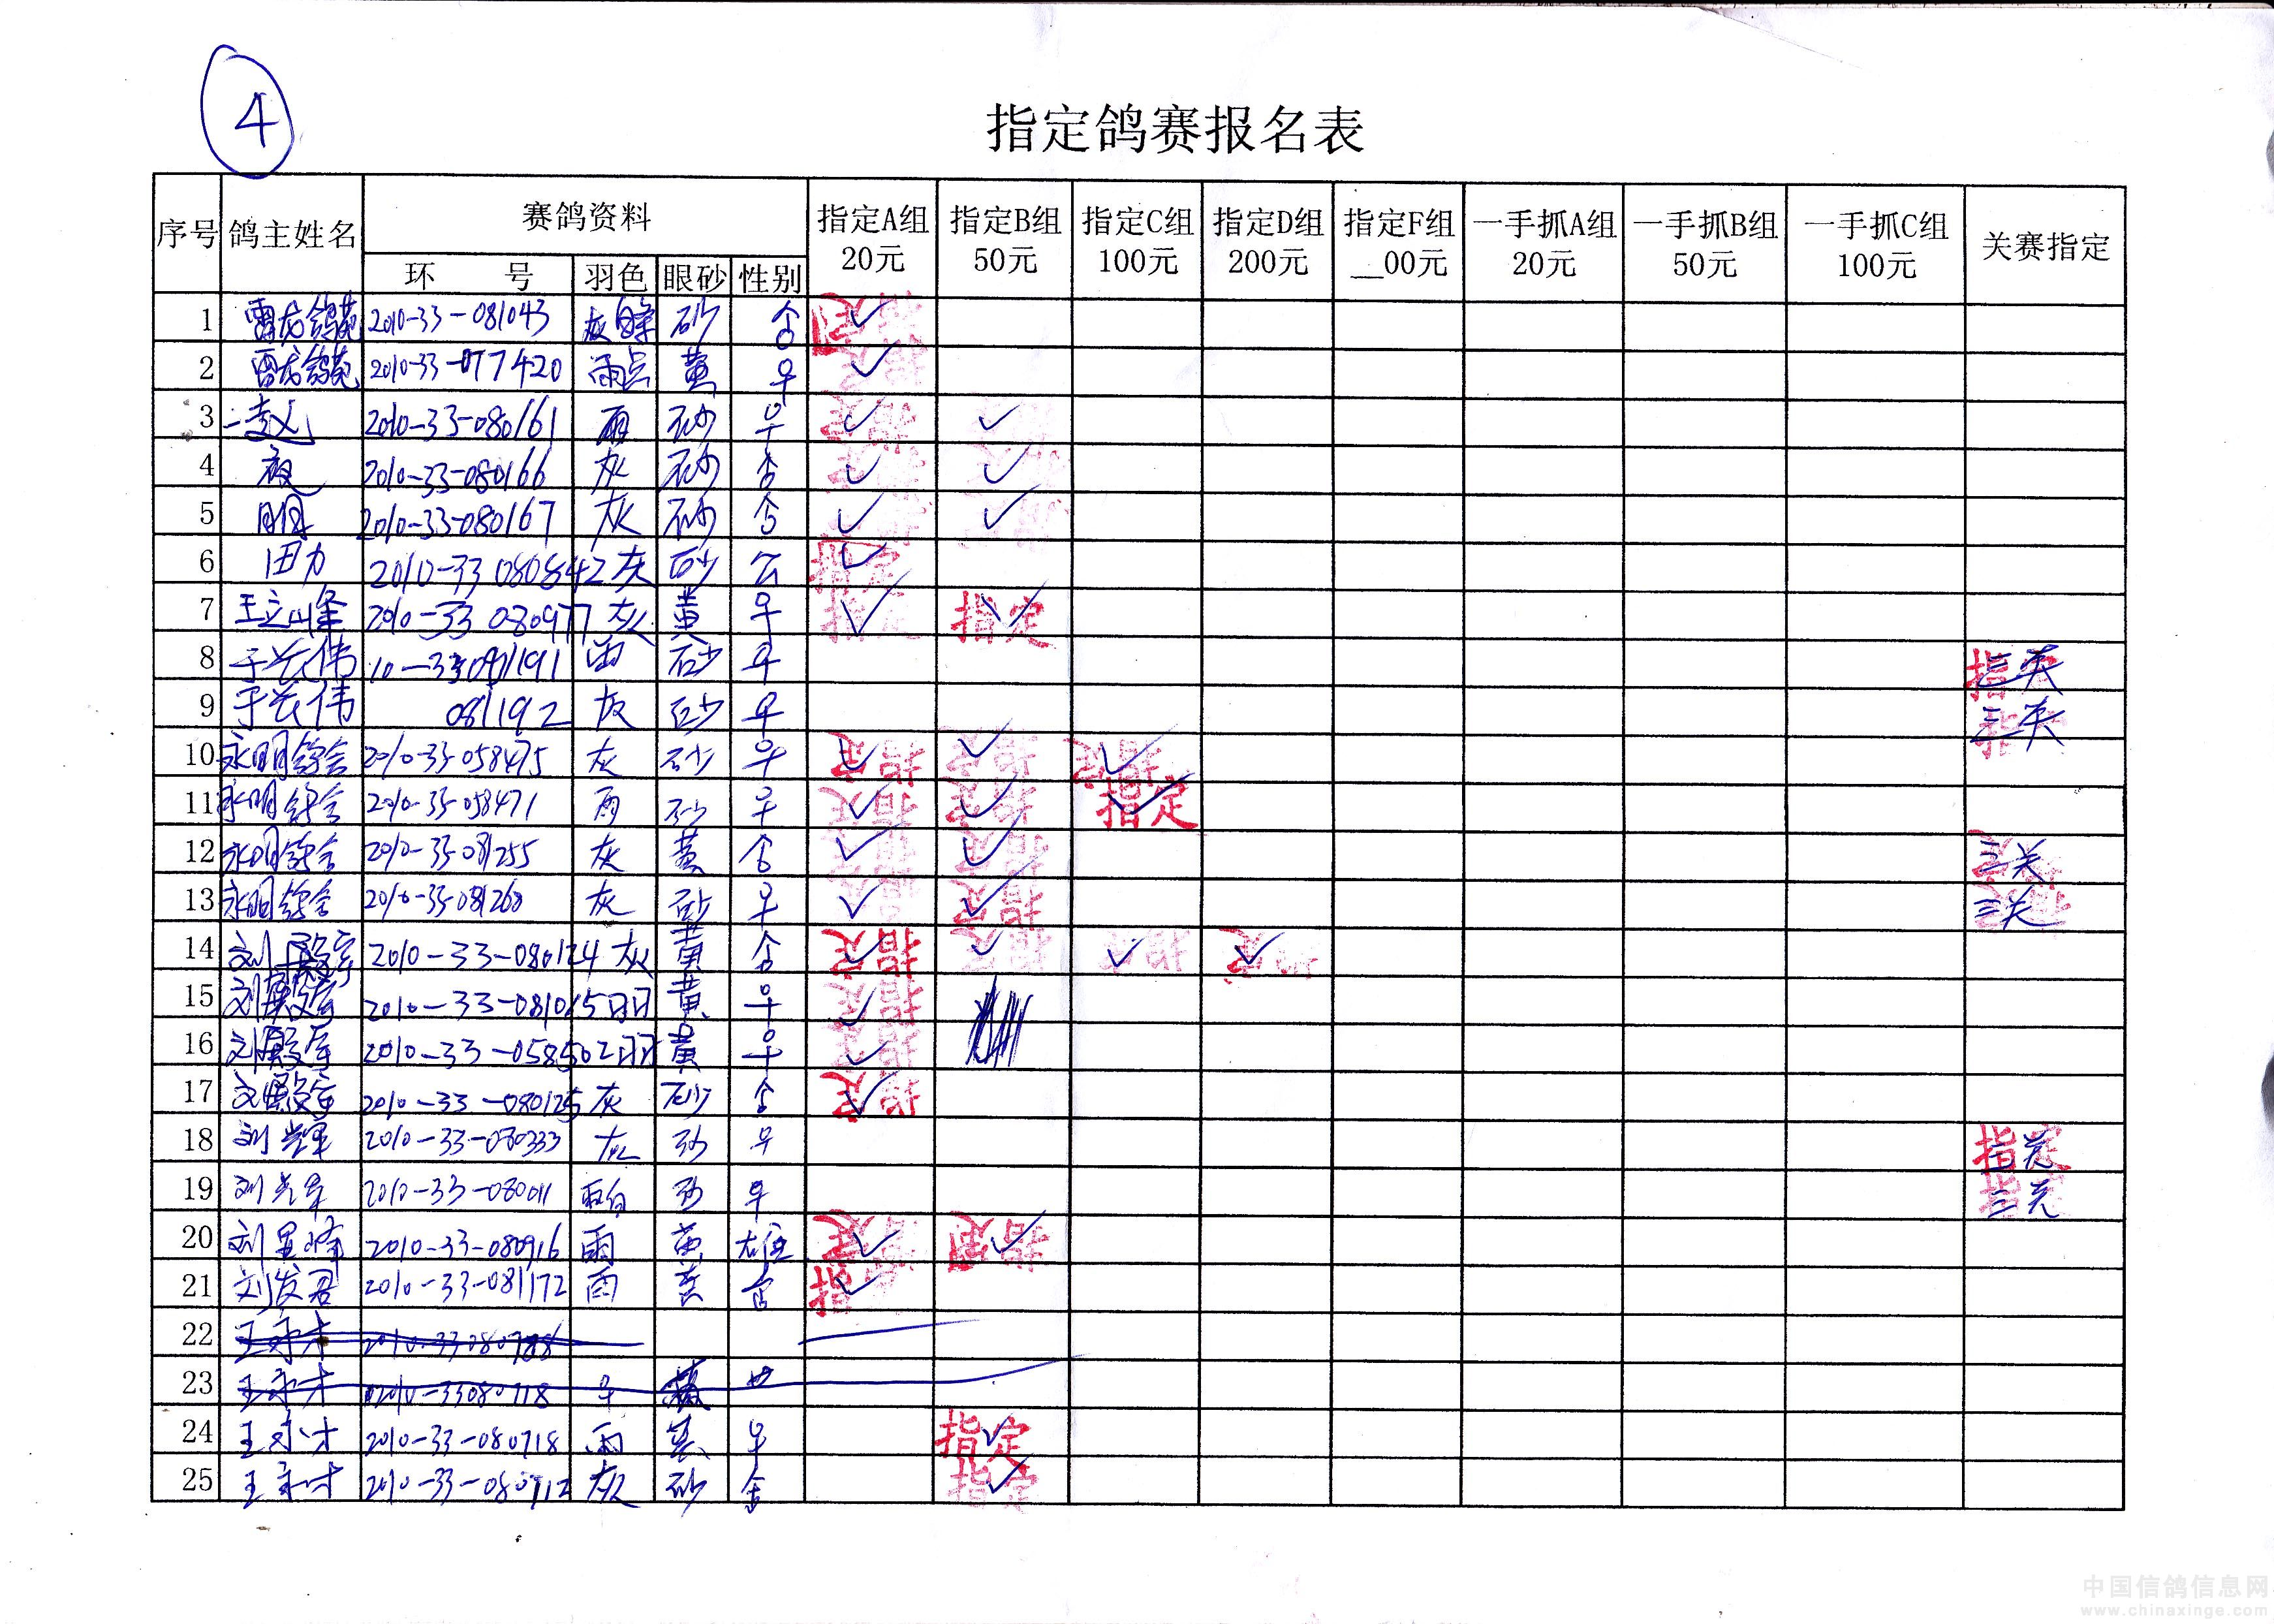 4
指定鸽赛报名表
序号 鸽主姓名 赛鸽资料 指定A组 20元 指定B组 50元 指定C组 100元 指定D组 200元 指定F组 __00元 一手抓A组 20元 一手抓B组 50元 一手抓C组 100元 关赛指定
环 号 羽色 眼砂 性别
1 雷龙鸽苑 2010-33-081043 灰白条 砂 ✓
2 雷龙鸽苑 2010-33-077420 雨点 黄 ♀ ✓
3 2010-33-080161 雨 砂 ♀ ✓ ✓
4 2010-33-080166 灰 砂 ✓ ✓
5 2010-33-080167 灰 砂 ✓ ✓
6 田力 2010-33 080842 灰 砂 公 指定 ✓
7 王立峰 2010-33 080977 灰 黄 ♀ 指定 ✓ 指定 ✓
8 于长伟 10-33 081191 雨 砂 ♀ 指定 三关
9 于长伟 081192 灰 砂 ♀ 指定 三关
10 永明鸽舍 2010-33-058475 灰 砂 ♀ 指定 ✓ 指定 ✓ 指定 ✓
11 永明鸽舍 2010-33-058471 雨 砂 ♀ 指定 ✓ 指定 ✓ 指定 ✓
12 永明鸽舍 2010-33-081255 灰 黄 ✓ ✓ 三关
13 永明鸽舍 2010-33-081260 灰 砂 ♀ ✓ 指定 ✓ 三关
14 刘殿军 2010-33-080124 灰 黄 指定 ✓ 指定 ✓ 指定 ✓ 指定 ✓
15 刘殿军 2010-33-081015 黄 ♀ 指定 ✓
16 刘殿军 2010-33-058502 黄 ♀ 指定 ✓
17 刘殿军 2010-33-080125 灰 砂 指定 ✓
18 刘 2010-33-080333 灰 砂 ♀ 指定 三关
19 刘 2010-33-080011 砂 ♀ 指定 三关
20 刘显峰 2010-33-080916 雨 黄 雄 指定 ✓ 指定 ✓
21 刘发君 2010-33-081172 雨 黄 指定 ✓
22 王永才
23 王永才 2010-33080718
24 王永才 2010-33-080718 雨 黄 ♀ 指定 ✓
25 王永才 2010-33-080712 灰 砂 指定 ✓
中国信鸽信息网
www.chinaxinge.com